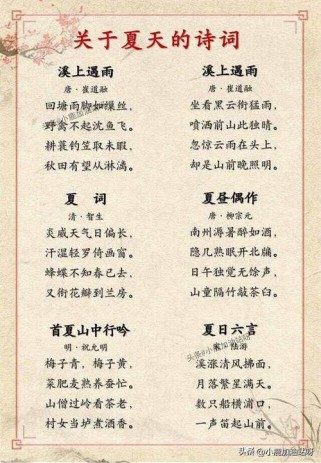 关于夏天的诗词
溪上遇雨
唐·崔道融
回塘雨脚如缫丝，
野禽不起沈鱼飞。
耕蓑钓笠取未暇，
秋田有望从淋漓。
溪上遇雨
唐·崔道融
坐看黑云衔猛雨，
喷洒前山此独晴。
忽惊云雨在头上，
却是山前晚照明。
夏 词
清·智生
炎威天气日偏长，
汗湿轻罗倚画窗。
蜂蝶不知春已去，
又衔花瓣到兰房。
夏昼偶作
唐·柳宗元
南州溽暑醉如酒，
隐几熟眠开北牖。
日午独觉无馀声，
山童隔竹敲茶臼。
首夏山中行吟
明·祝允明
梅子青，梅子黄，
菜肥麦熟养蚕忙。
山僧过岭看茶老，
村女当垆煮酒香。
夏日六言
宋·陆游
溪涨清风拂面，
月落繁星满天。
数只船横浦口，
一声笛起山前。
头条@小鹿加油站呀
头条 @小鹿加油站呀